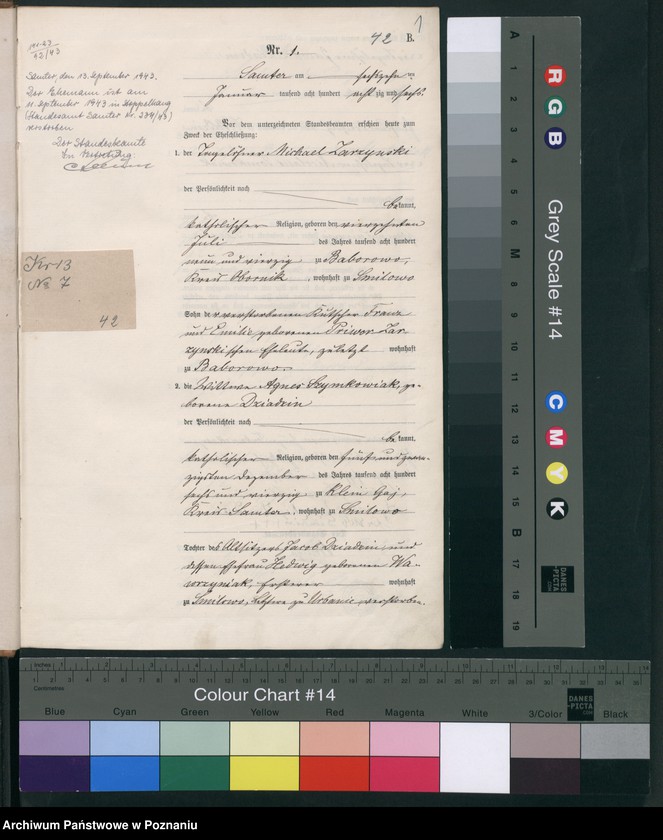 42 B.
1
Nr. 1.
Samter am sechszehn ten
Januar tausend acht hundert acht zig und sechs.
Vor dem unterzeichneten Standesbeamten erschien heute zum
Zweck der Eheschließung:
1. der Tagelöhner Michael Zarzynski
der Persönlichkeit nach
be kannt,
katholischer Religion, geboren den vierzehnten
Juli des Jahres tausend acht hundert
neun und vierzig zu Baborowo,
Kreis Obornik, wohnhaft zu Smilowo
Sohn der verstorbenen Kutscher Franz
und Emilie geborenen Zar
zynskischen Eheleute, zuletzt wohnhaft
zu Baborowo.
2. die Wittwe Agnes Szymkowiak, ge-
borene Dziadzin
der Persönlichkeit nach
be kannt,
katholischer Religion, geboren den fünf und zwan-
zigsten Dezember des Jahres tausend acht hundert
sechs und vierzig zu Klein Gaj,
Kreis Samter, wohnhaft zu Smilowo
Tochter des Altsitzers Jacob Dziadzin und
dessen Ehefrau Hedwig geborenen Wa-
wrzyniak, Ersterer wohnhaft
zu Smilowo, Letztere zu Urbanie verstorben.
42/43
Samter, den 13. September 1943.
Der Ehemann ist am
11. September 1943 in
(Standesamt Samter Nr. )
verstorben
Der Standesbeamte
In Vertretung:
Nr 13
No 7
42
A 1 2 3 4 5 M 8 9 10 11 12 13 14 15 B 17 18 19
R G B
Grey Scale #14
C M Y K
DANES
-PICTA
.COM
Inches 1 2 3 4 5 6 7 8 9 10 11 12 13 14
Centimetres
Colour Chart #14
DANES
-PICTA
.COM
Blue Cyan Green Yellow Red Magenta White 3/Color Black
Archiwum Państwowe w Poznaniu